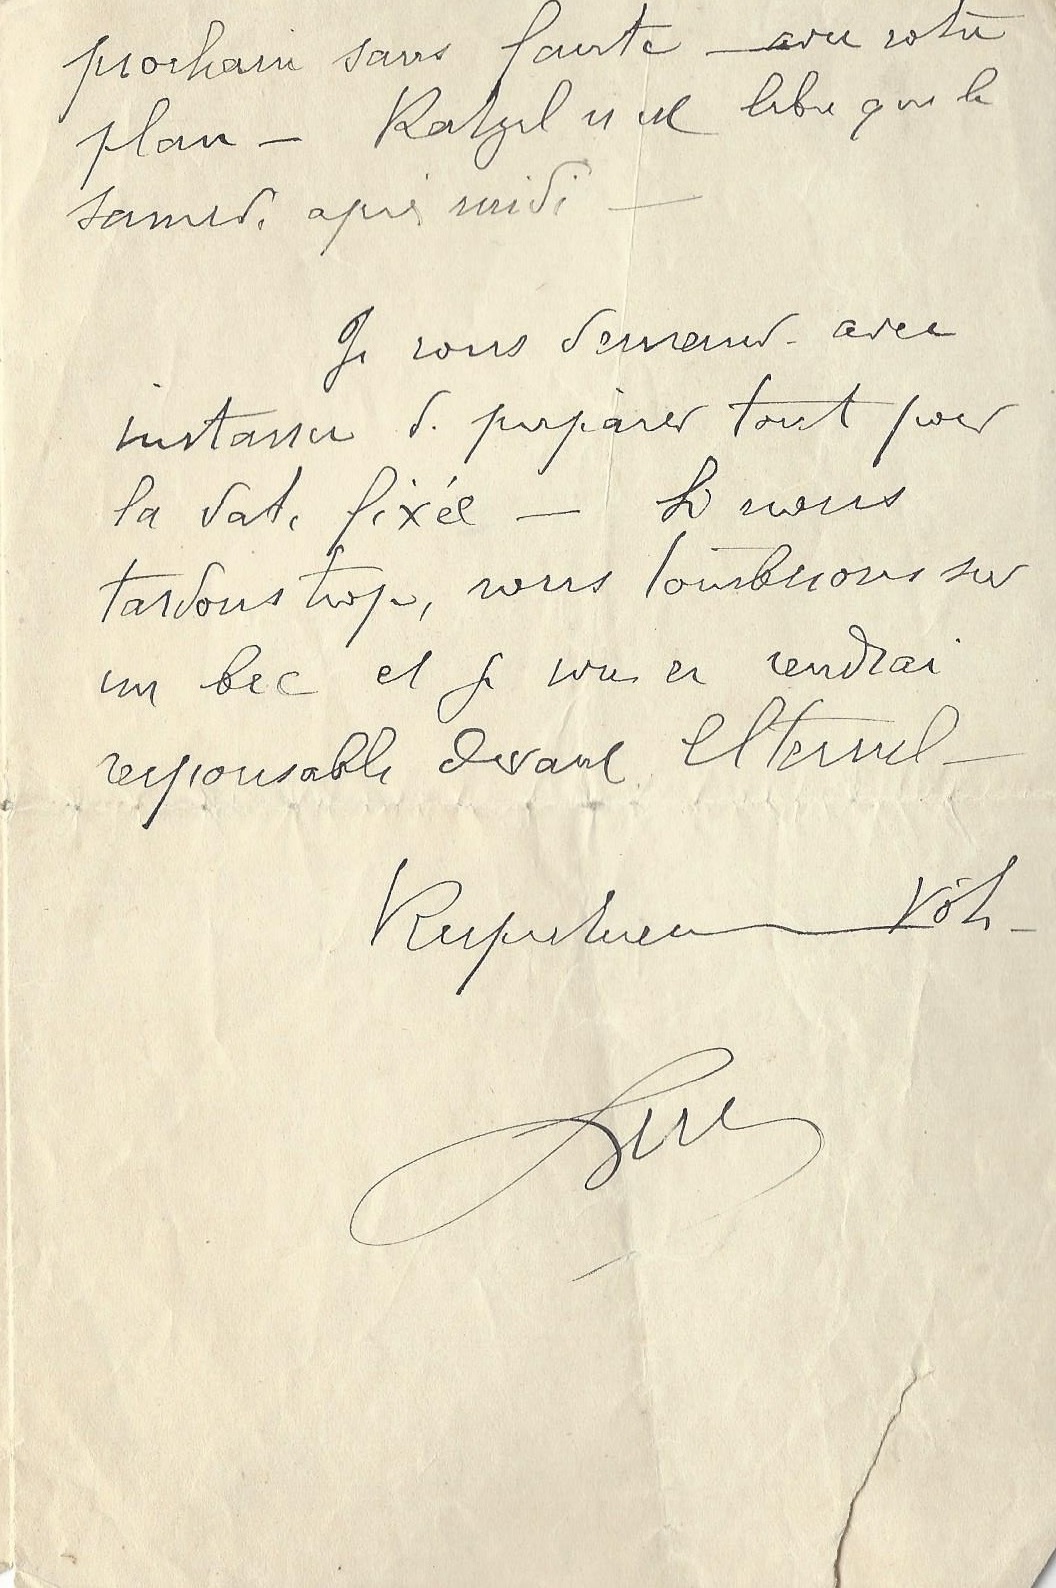 prochain sans faute — avec votre
plan — Ratzel n'est libre que le
samedi après midi —
Je vous demande avec
instance de préparer tout pour
la date fixée — Si nous
tardons trop, nous tomberons sur
un bec et je vous en rendrai
responsable devant l'Eternel —
Respectueusement vôtre —